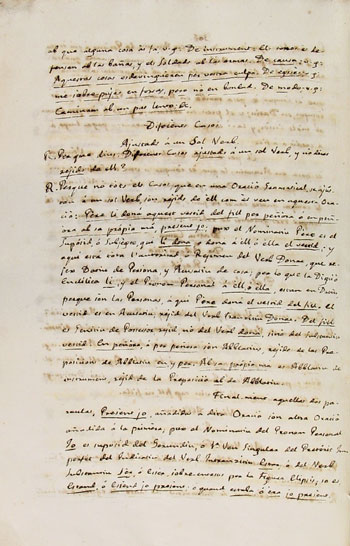 al que alguna cosa és fa v.g. De instrument: El
pensan ab las bañas, y el Soldado ab las armas. De causa v.g.
Aquestas cosas esdevinguéren per vostra culpa. De excés v.g.
me sobre puje en forsas, peró no en bondad. De modo v.g.
Caminan ab un pas lento. &c.
Diferéns Casos
Ajustads á un Sol Verb.
P. Perque dius, Diferéns Casos ajustads á un sol Verb, y no dius
regids de ell?
R. Perque no tots els Casos, que en una Oració Gramatical, se ajus-
tan á un sol Verb, son regids de ell com és veu en aquesta Ora-
ció: Pere la dona aquest vestid del fill per peñora ó empeñó-
ra al sa própia má, present jo, pues el Nominatiu Pere es el
Supósid ó Subjécte, que li dona, ó dona á ell ó ella el vestid; y
aqui está tota l'autoridad y Régimen del Verb Donar, que re-
geix Datiu de Persona, y Acusatiu de cosa; per lo que la Dicció
Enclítica li, y el Pronom Personal á ell ó ella, están en Datiu
perque son las Personas, á qui Pere dona el vestid del fill. el
vestid es en Acusatiu, regid del Verb Donar. Del fill
es Genitiu de Possessió regid, no del Verb dona, sino del Substantiu
vestid. En peñora, ó per peñora son Ablatius, regids de las Pre-
posicions de Ablatiu en y per. Ab sa própia má es Ablatiu de
instrument, regid de la Preposició ab de Ablatiu.
Finalment aquellas dos pa-
raulas, Present jo, añadidas á dita Oració son altra Oració
añadida á la primera, pues el Nominatiu del Pronom Personal
Jo es supósid del Gerundi, ó 1ª Veu Singular del Preterit Im-
perfet del Indicatiu del Verb Intransitiu Estar, ó del Verb
Substantiu Sér, ó Esser, sobreentesos per la Figura Elipsis, ço es
Estand, ó Essend jo present, ó quant estaba ó era jo present.